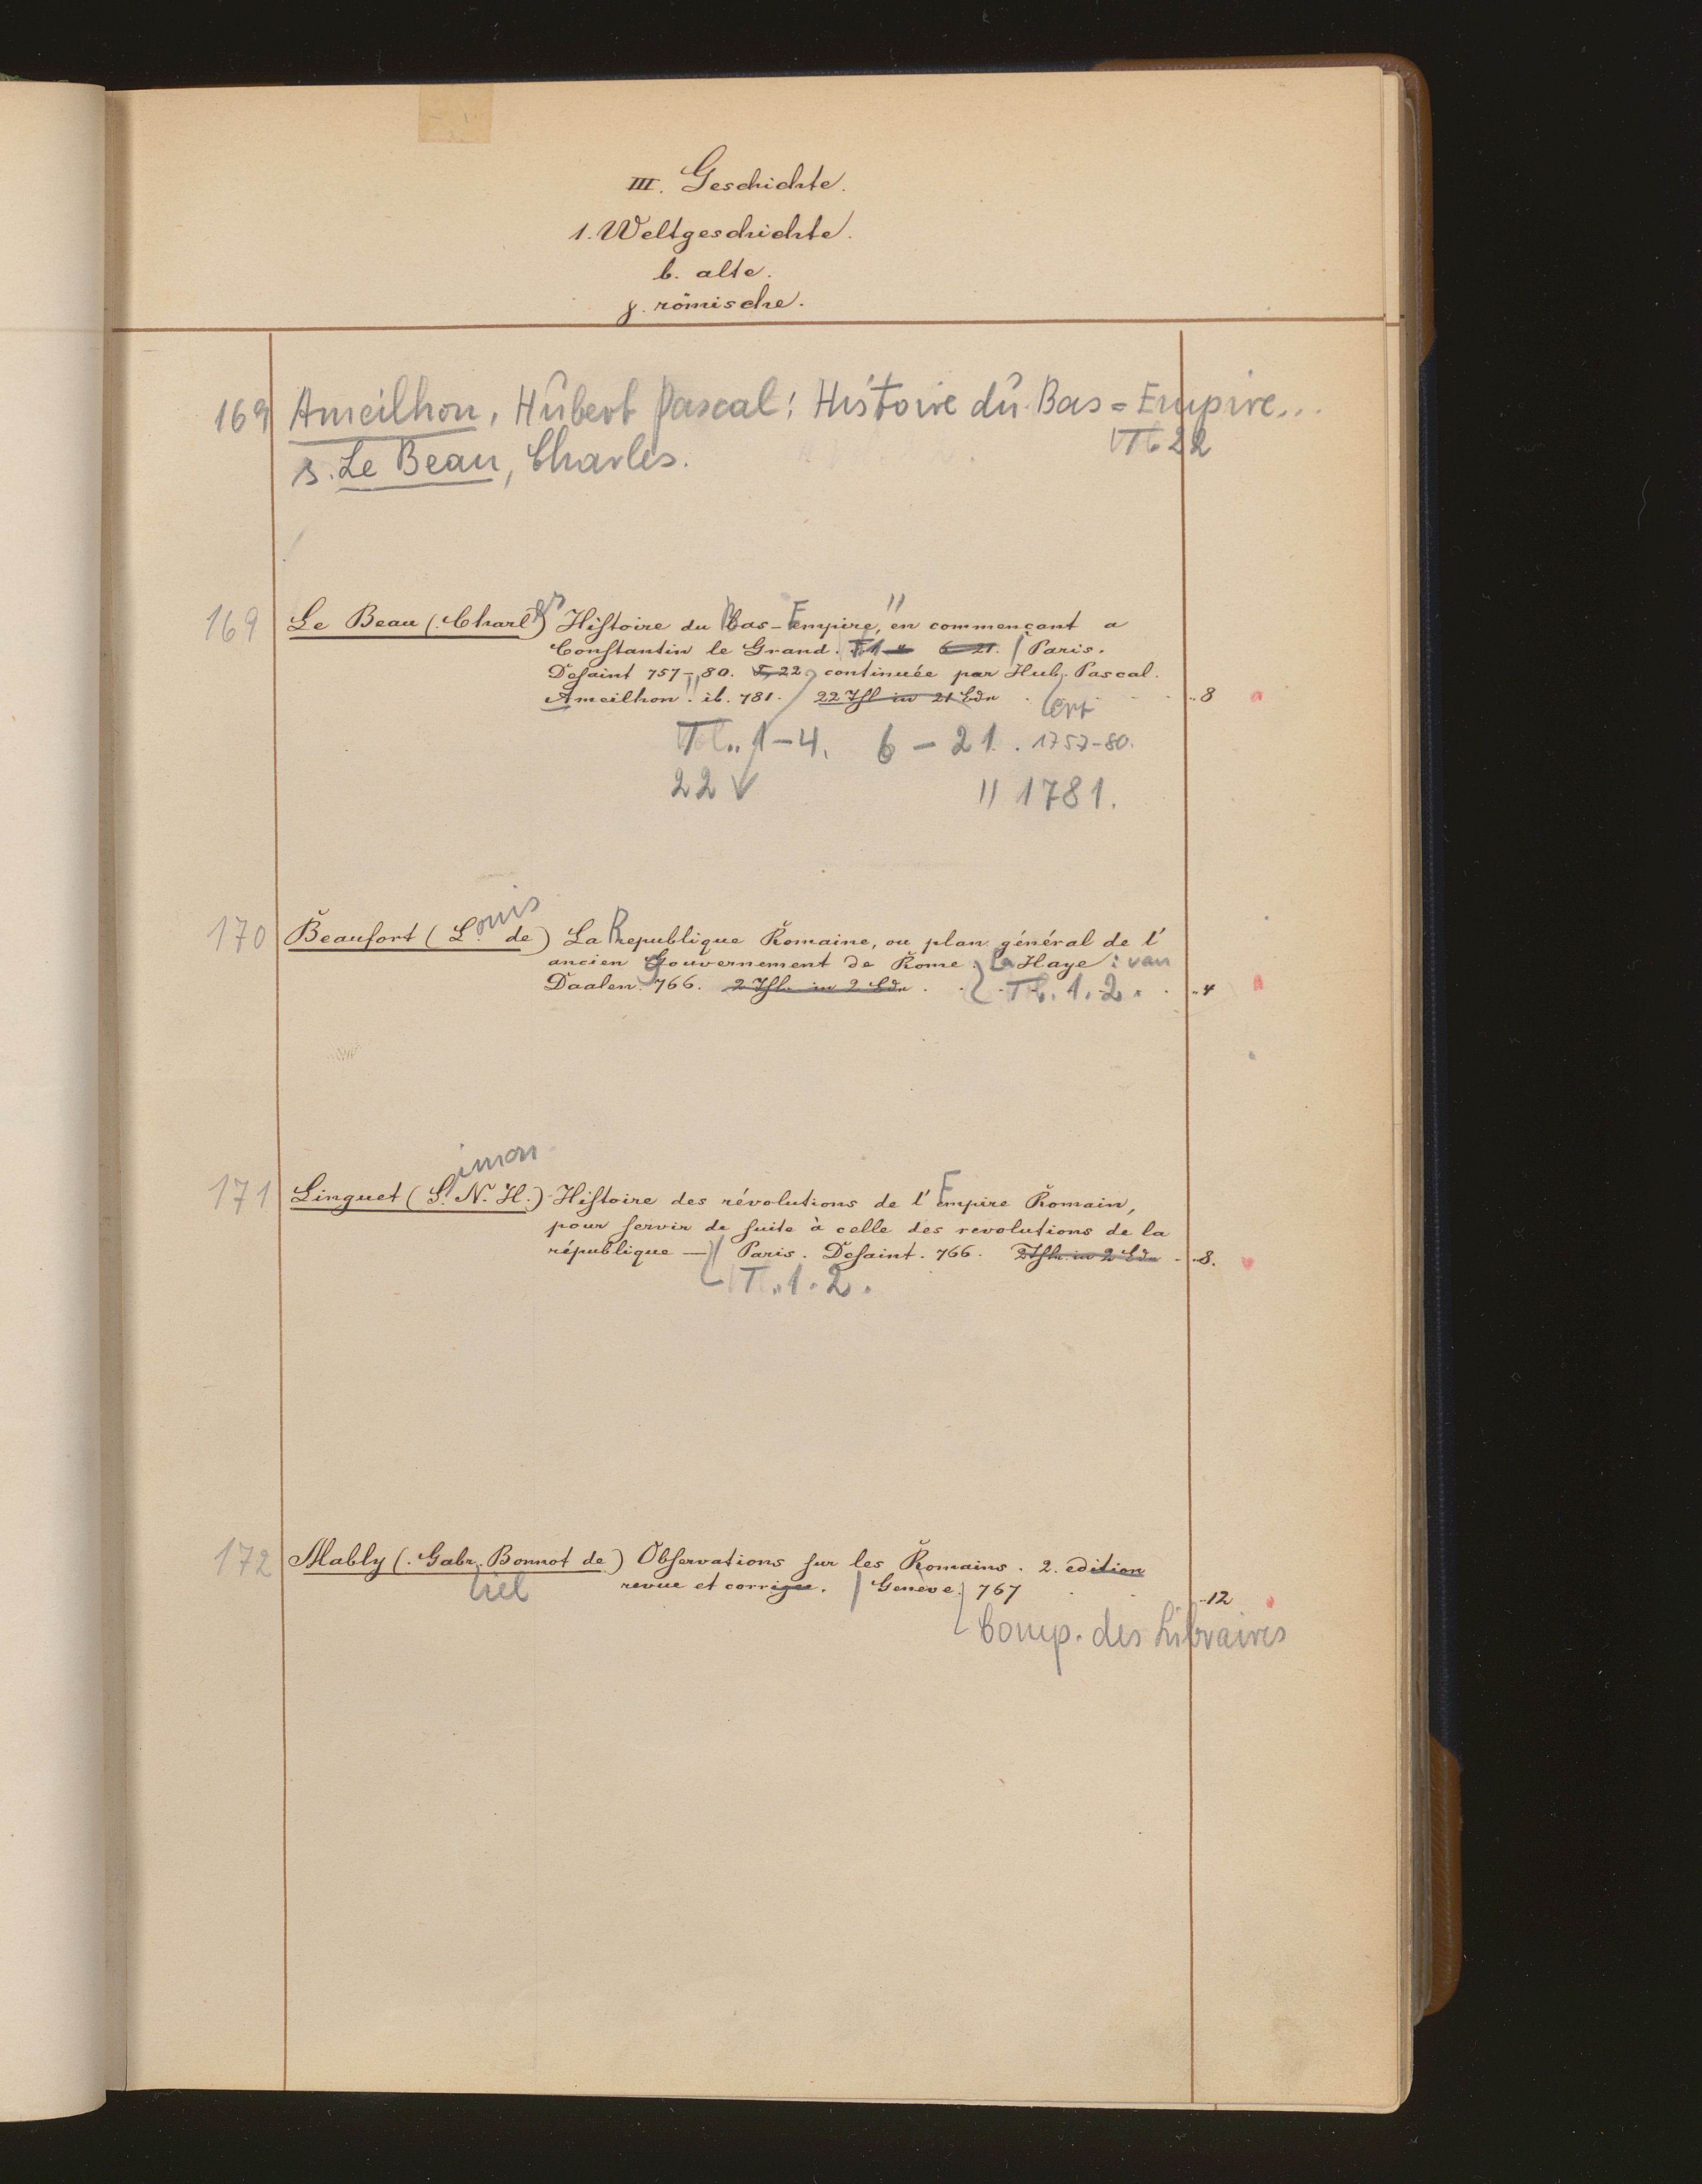 III. Geschichte.
1. Weltgeschichte.
b. alte.
γ. römische.
169 Ameilhon, Hubert Pascal: Histoire du Bas=Empire...
Tl 22
s. Le Beau, Charles.
169 Le Beau (Charles) Histoire du Bas-Empire, en commençant a
Constantin le Grand. T. 1-4 6-21. Paris.
Desaint 757-80. T. 22 continuée par Hub. Pascal.
Ameilhon. ib. 781. 22 Thl in 21 Bdn ..8
Tl.. 1-4. 6-21. 1757-80.
22 " 1781.
170 Beaufort (Louis de) La Republique Romaine, ou plan général de l'
ancien gouvernement de Rome. La Haye: van
Daalen. 766. 2 Thl. in 2 Bdn. Tl. 1.2. ..4
imon
171 Linguet (S. N. H.) Histoire des révolutions de l'Empire Romain,
pour servir de suite à celle des revolutions de la
république — Paris. Desaint. 766. 2 Thl. in 2 Bdn ..8.
Tl. 1.2.
172 Mably (Gabr. Bonnot de) Observations sur les Romains. 2. edition
iel revue et corrigee. Geneve. 767 ..12
Comp. des Libraires